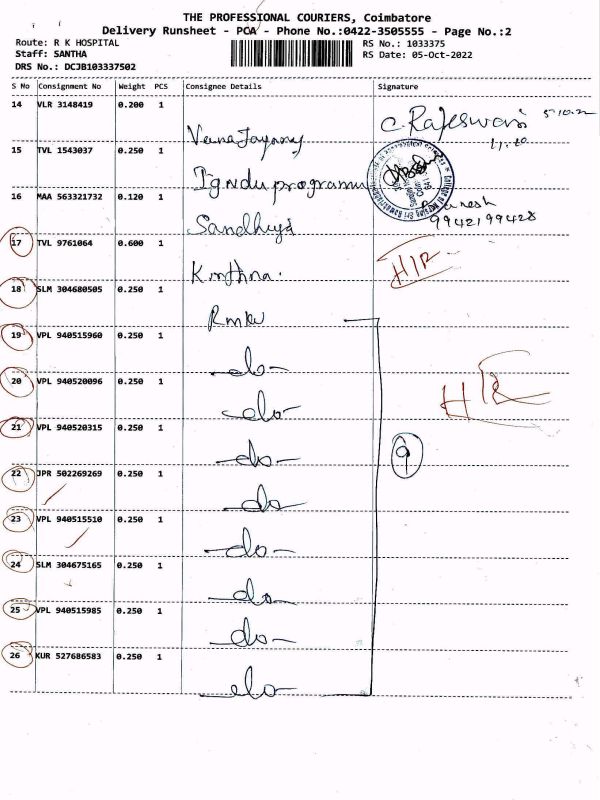 THE PROFESSIONAL COURIERS, Coimbatore
Delivery Runsheet - PCA - Phone No.:0422-3505555 - Page No.:2
Route: R K HOSPITAL
Staff: SANTHA
DRS No.: DCJB103337502
RS No.: 1033375
RS Date: 05-Oct-2022
S No Consignment No Weight PCS Consignee Details Signature
14 VLR 3148419 0.200 1
C. Rajeswari 5-10-22
15 TVL 1543037 0.250 1
Igndu programm
16 MAA 563321732 0.120 1
Sandhiya
9942199428
17 TVL 9761064 0.600 1
Krithna.
18 SLM 304680505 0.250 1
Rmkv
19 VPL 940515960 0.250 1
-do-
20 VPL 940520096 0.250 1
-do-
21 VPL 940520315 0.250 1
-do-
9
22 JPR 502269269 0.250 1
-do
23 VPL 940515510 0.250 1
-do-
24 SLM 304675165 0.250 1
-do-
25 VPL 940515985 0.250 1
-do-
26 KUR 527686583 0.250 1
-do-